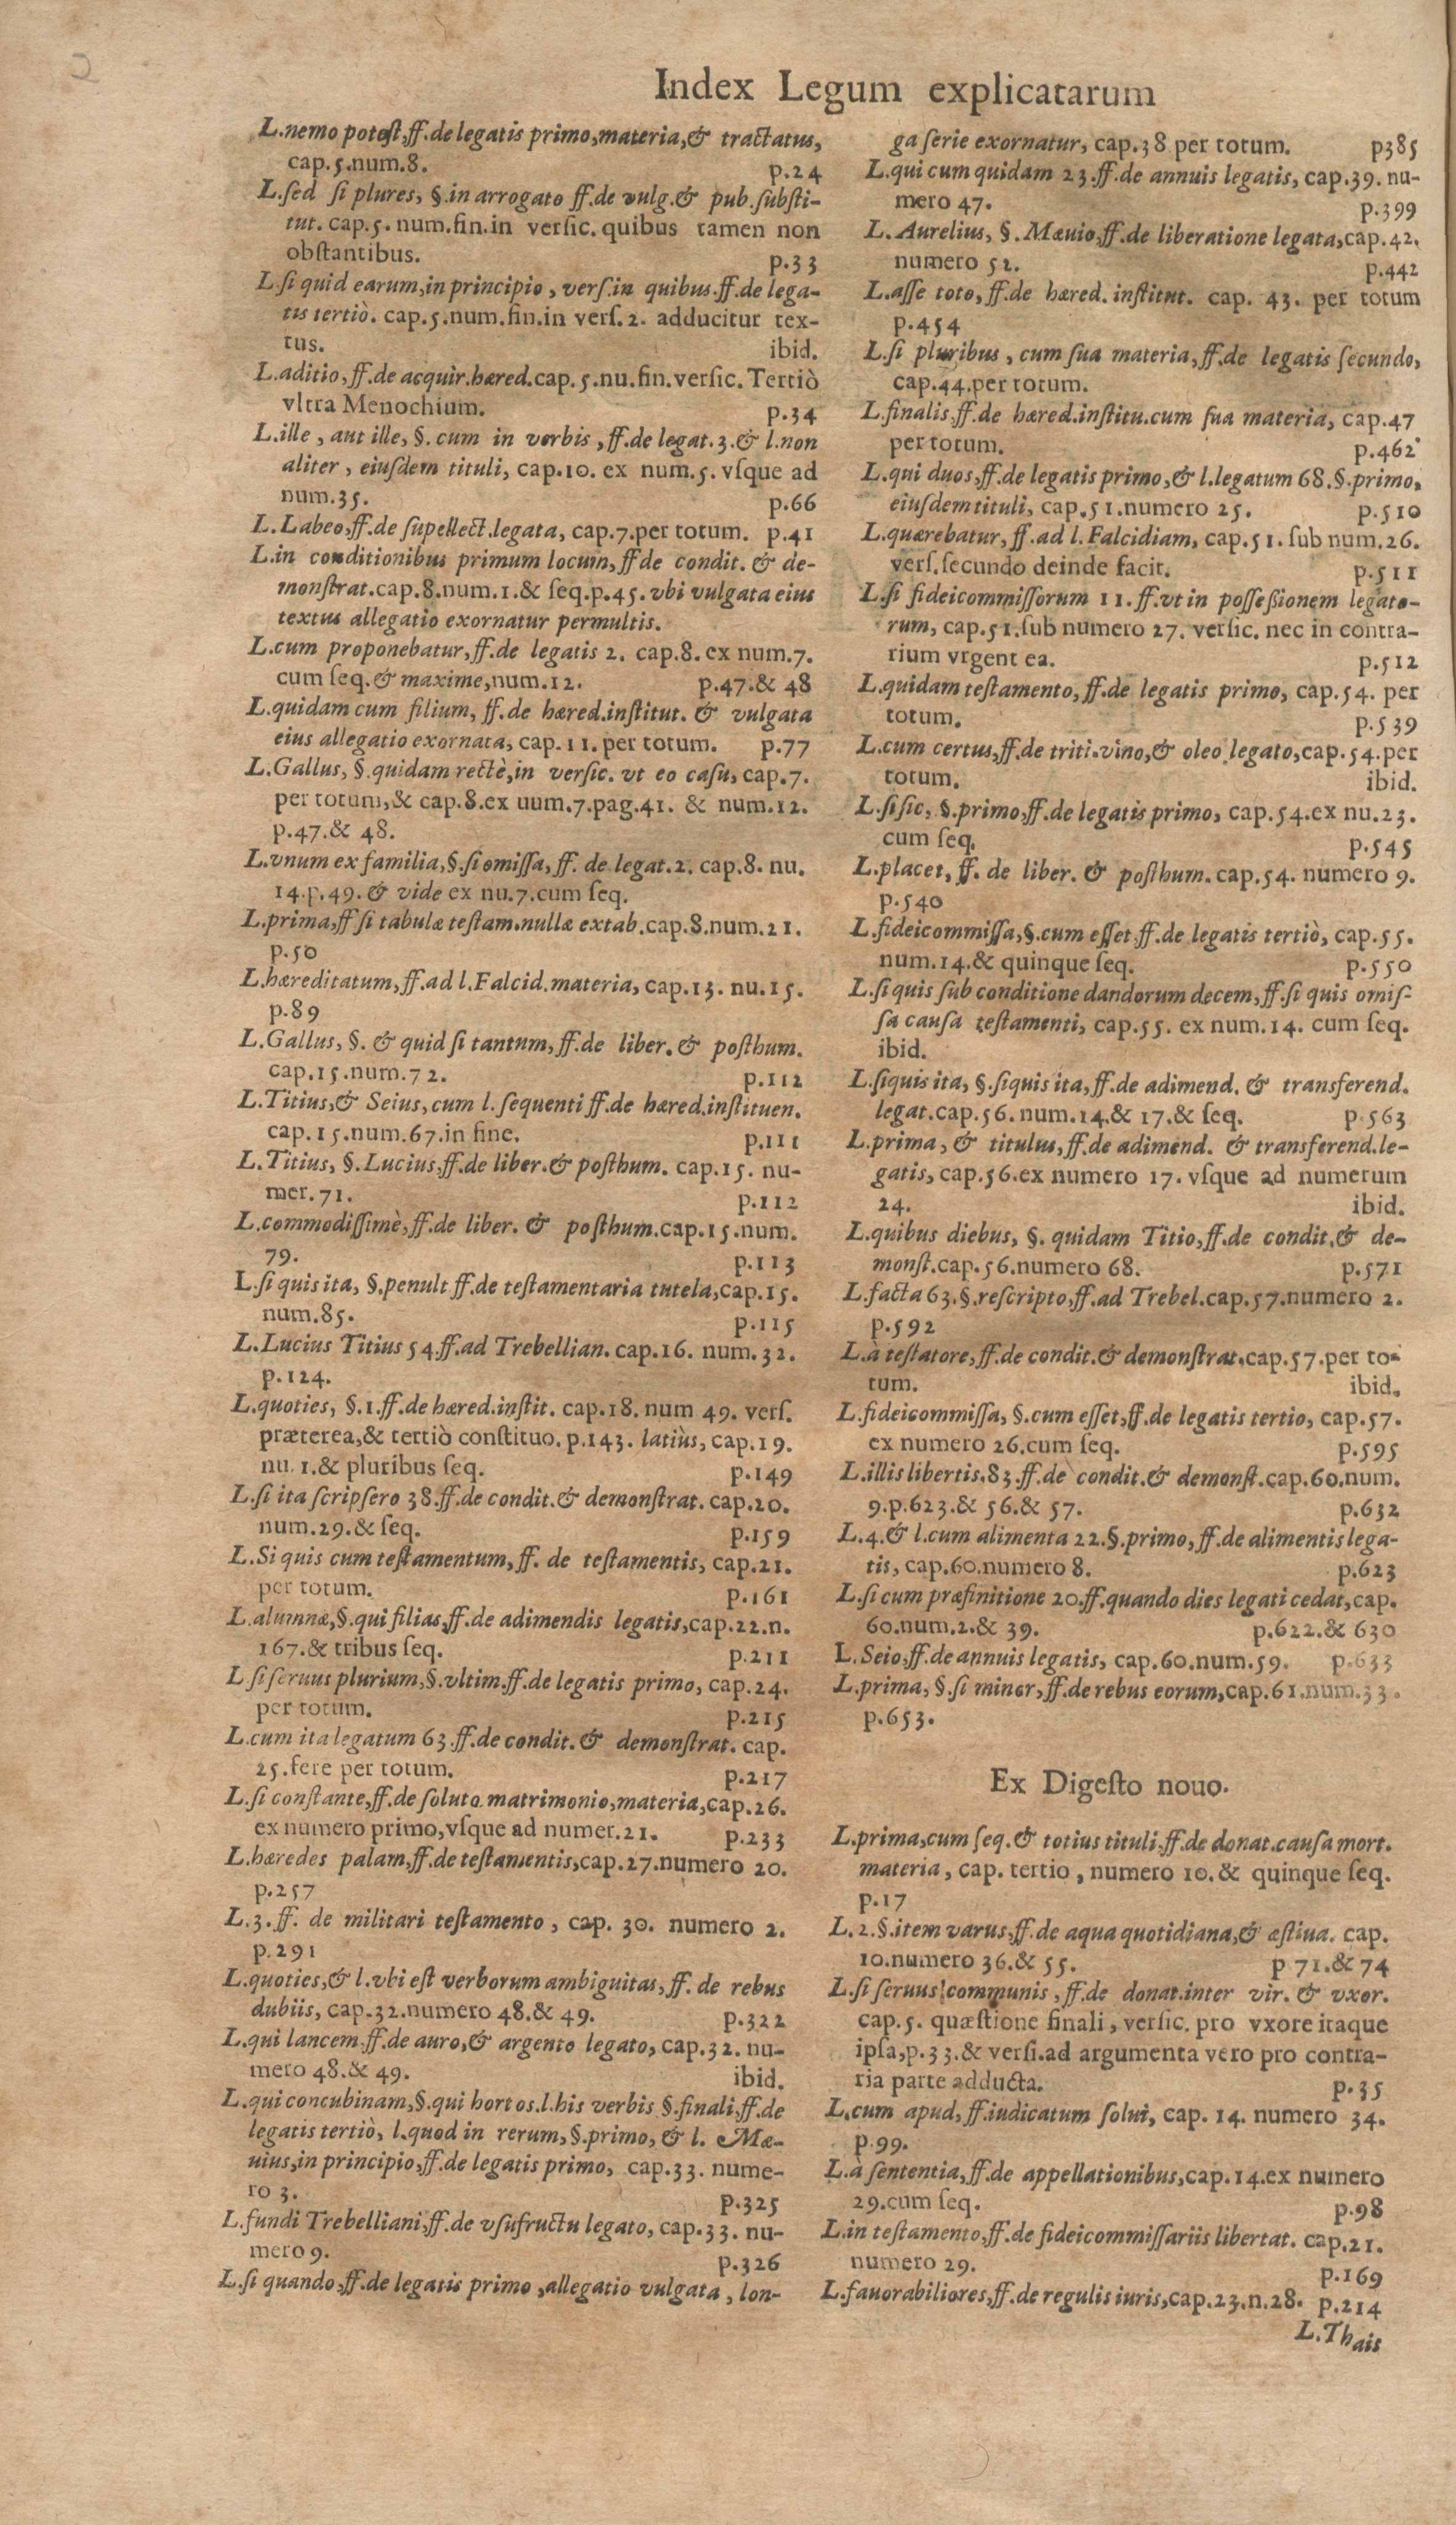 2
Index Legum explicatarum
L.nemo potest,ff.de legatis primo,materia,& tractatus,
cap.5.num.8. p.24
L.sed si plures, §.in arrogato ff.de vulg.& pub.substi-
tut. cap.5. num.fin.in versic.quibus tamen non
obstantibus. p.33
L.si quid earum,in principio, vers.in quibus.ff.de lega-
tis tertiò. cap.5.num.fin.in vers.2. adducitur tex-
tus. ibid.
L.aditio,ff.de acquir.hæred.cap.5.nu.fin.versic.Tertiò
vltra Menochium. p.34
L.ille, aut ille, §. cum in verbis, ff.de legat.3.& l.non
aliter, eiusdem tituli, cap.10. ex num.5. vsque ad
num.35. p.66
L. Labeo,ff.de supellect.legata, cap.7.per totum. p.41
L.in conditionibus primum locum, ff de condit. & de-
monstrat.cap.8.num.1.& seq.p.45. vbi vulgata eius
textus allegatio exornatur permultis.
L.cum proponebatur, ff.de legatis 2. cap.8. ex num.7.
cum seq.& maxime,num.12. p.47.& 48
L.quidam cum filium, ff.de hæred.institut. & vulgata
eius allegatio exornata, cap.11.per totum. p.77
L.Gallus, §.quidam rectè,in versic. vt eo casu, cap.7.
per totum,& cap.8.ex uum.7.pag.41. & num.12.
p.47.& 48.
L.vnum ex familia,§.si omissa, ff. de legat.2. cap.8. nu.
14.p.49. & vide ex nu.7.cum seq.
L.prima,ff si tabulæ testam.nullæ extab.cap.8.num.21.
p.50
L.hæreditatum,ff.ad l.Falcid.materia, cap.13. nu.15.
p.89
L.Gallus, §. & quid si tantum, ff.de liber.& posthum.
cap.15.num.72. p.112
L.Titius,& Seius, cum l. sequenti ff.de hæred.instituen.
cap.15.num.67.in fine. p.111
L.Titius, §.Lucius,ff.de liber.& posthum. cap.15. nu-
mer.71. p.112
L.commodissimè,ff.de liber. & posthum.cap.15.num.
79. p.113
L.si quis ita, §.penult ff.de testamentaria tutela,cap.15.
num.85. p.115
L.Lucius Titius 54.ff.ad Trebellian. cap.16. num.32.
p.124.
L.quoties, §.1.ff.de hæred.instit. cap.18. num 49. vers.
præterea,& tertiò constituo. p.143. latiùs, cap.19.
nu.1.& pluribus seq. p.149
L.si ita scripsero 38.ff.de condit.& demonstrat. cap.20.
num.29.& seq. p.159
L.Si quis cum testamentum, ff. de testamentis, cap.21.
per totum. p.161
L.alumnæ,§.qui filias,ff.de adimendis legatis,cap.22.n.
167.& tribus seq. p.211
L si seruus plurium,§.vltim.ff.de legatis primo, cap.24.
per totum. p.215
L.cum ita legatum 63.ff.de condit. & demonstrat. cap.
25.fere per totum. p.217
L.si constante,ff.de soluto matrimonio,materia,cap.26.
ex numero primo,vsque ad numer.21. p.233
L.hæredes palam,ff.de testamentis,cap.27.numero 20.
p.257
L.3. ff. de militari testamento, cap. 30. numero 2.
p.291
L.quoties,& l.vbi est verborum ambiguitas, ff. de rebus
dubiis, cap.32.numero 48.& 49. p.322
L.qui lancem.ff.de auro,& argento legato, cap.32. nu-
mero 48.& 49. ibid.
L.qui concubinam,§.qui hortos.l.his verbis §.finali,ff.de
legatis tertiò, l.quod in rerum,§.primo, & l. Mæ-
uius,in principio,ff.de legatis primo, cap.33. nume-
ro 3. p.325
L.fundi Trebelliani,ff.de vsufructu legato, cap.33. nu-
mero 9. p.326
L.si quando,ff.de legatis primo ,allegatio vulgata, lon-
ga serie exornatur, cap.38 per totum. p385
L.qui cum quidam 23.ff.de annuis legatis, cap.39. nu-
mero 47. p.399
L. Aurelius, §. Mæuio,ff.de liberatione legata,cap.42.
numero 52. p.442
L.asse toto, ff.de hæred. institut. cap. 43. per totum
p.454
L.si pluribus, cum sua materia, ff.de legatis secundo,
cap.44.per totum.
L.finalis,ff.de hæred.institu.cum sua materia, cap.47
per totum. p.462
L.qui duos,ff.de legatis primo,& l.legatum 68.§.primo,
eiusdem tituli, cap.51.numero 25. p.510
L.quærebatur, ff.ad l.Falcidiam, cap.51. sub num.26.
vers.secundo deinde facit. p.511
L.si fideicommissorum 11.ff.vt in possessionem legato-
rum, cap.51.sub numero 27. versic. nec in contra-
rium vrgent ea. p.512
L.quidam testamento, ff.de legatis primo, cap.54. per
totum. p.539
L.cum certus,ff.de triti.vino,& oleo legato,cap.54.per
totum. ibid.
L.si sic, §.primo,ff.de legatis primo, cap.54.ex nu.23.
cum seq. p.545
L.placet, ff. de liber. & posthum. cap.54. numero 9.
p.540
L.fideicommissa,§.cum esset,ff.de legatis tertiò, cap.55.
num.14.& quinque seq. p.550
L.si quis sub conditione dandorum decem, ff.si quis omis-
sa causa testamenti, cap.55. ex num.14. cum seq.
ibid.
L.siquis ita, §.siquis ita, ff.de adimend. & transferend.
legat.cap.56. num.14.& 17.& seq. p.563
L.prima, & titulus, ff.de adimend. & transferend.le-
gatis, cap.56.ex numero 17. vsque ad numerum
24. ibid.
L.quibus diebus, §. quidam Titio,ff.de condit.& de-
monst.cap.56.numero 68. p.571
L.facta 63.§.rescripto,ff.ad Trebel.cap.57.numero 2.
p.592
L.à testatore, ff.de condit.& demonstrat.cap.57.per to-
tum. ibid.
L.fideicommissa, §.cum esset,ff.de legatis tertio, cap.57.
ex numero 26.cum seq. p.595
L.illis libertis.83.ff.de condit.& demonst.cap.60.num.
9.p.623.& 56.& 57. p.632
L.4.& l.cum alimenta 22.§.primo, ff.de alimentis lega-
tis, cap.60.numero 8. p.623
L.si cum præfinitione 20.ff.quando dies legati cedat,cap.
60.num.2.& 39. p.622.& 630
L.Seio,ff.de annuis legatis, cap.60.num.59. p.633
L.prima, §.si minor, ff.de rebus eorum,cap.61.num.33.
p.653.
Ex Digesto nouo.
L.prima,cum seq.& totius tituli,ff.de donat.causa mort.
materia, cap. tertio, numero 10.& quinque seq.
p.17
L.2.§.item varus,ff.de aqua quotidiana,& æstiua. cap.
10.numero 36.& 55. p 71.& 74
L.si seruus communis, ff.de donat.inter vir. & vxor.
cap.5. quæstione finali, versic. pro vxore itaque
ipsa,p.33.& versi.ad argumenta vero pro contra-
ria parte adducta. p.35
L.cum apud, ff.iudicatum solui, cap. 14. numero 34.
p.99.
L.à sententia,ff.de appellationibus,cap.14.ex numero
29.cum seq. p.98
L.in testamento,ff.de fideicommissariis libertat. cap.21.
numero 29. p.169
L.fauorabiliores,ff.de regulis iuris,cap.23.n.28. p.214
L.Thais